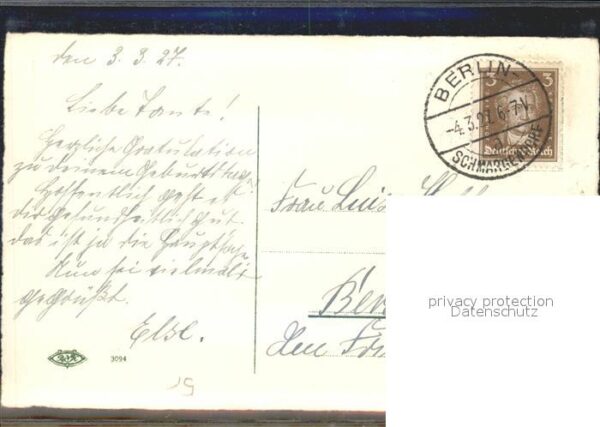 den 3. 3. 27.
Liebe Tante!
Herzliche Gratulation
zu deinem Geburtstage!
Hoffentlich geht es
dir gesundheitlich gut
das ist ja die Hauptsache
Nun sei vielmals
gegrüßt.
Else.
3094
BERLIN-
-4.3.27. 6-7V.
SCHMARGENDORF
3 3
Deutsches Reich
Frau
Ber
privacy protection
Datenschutz